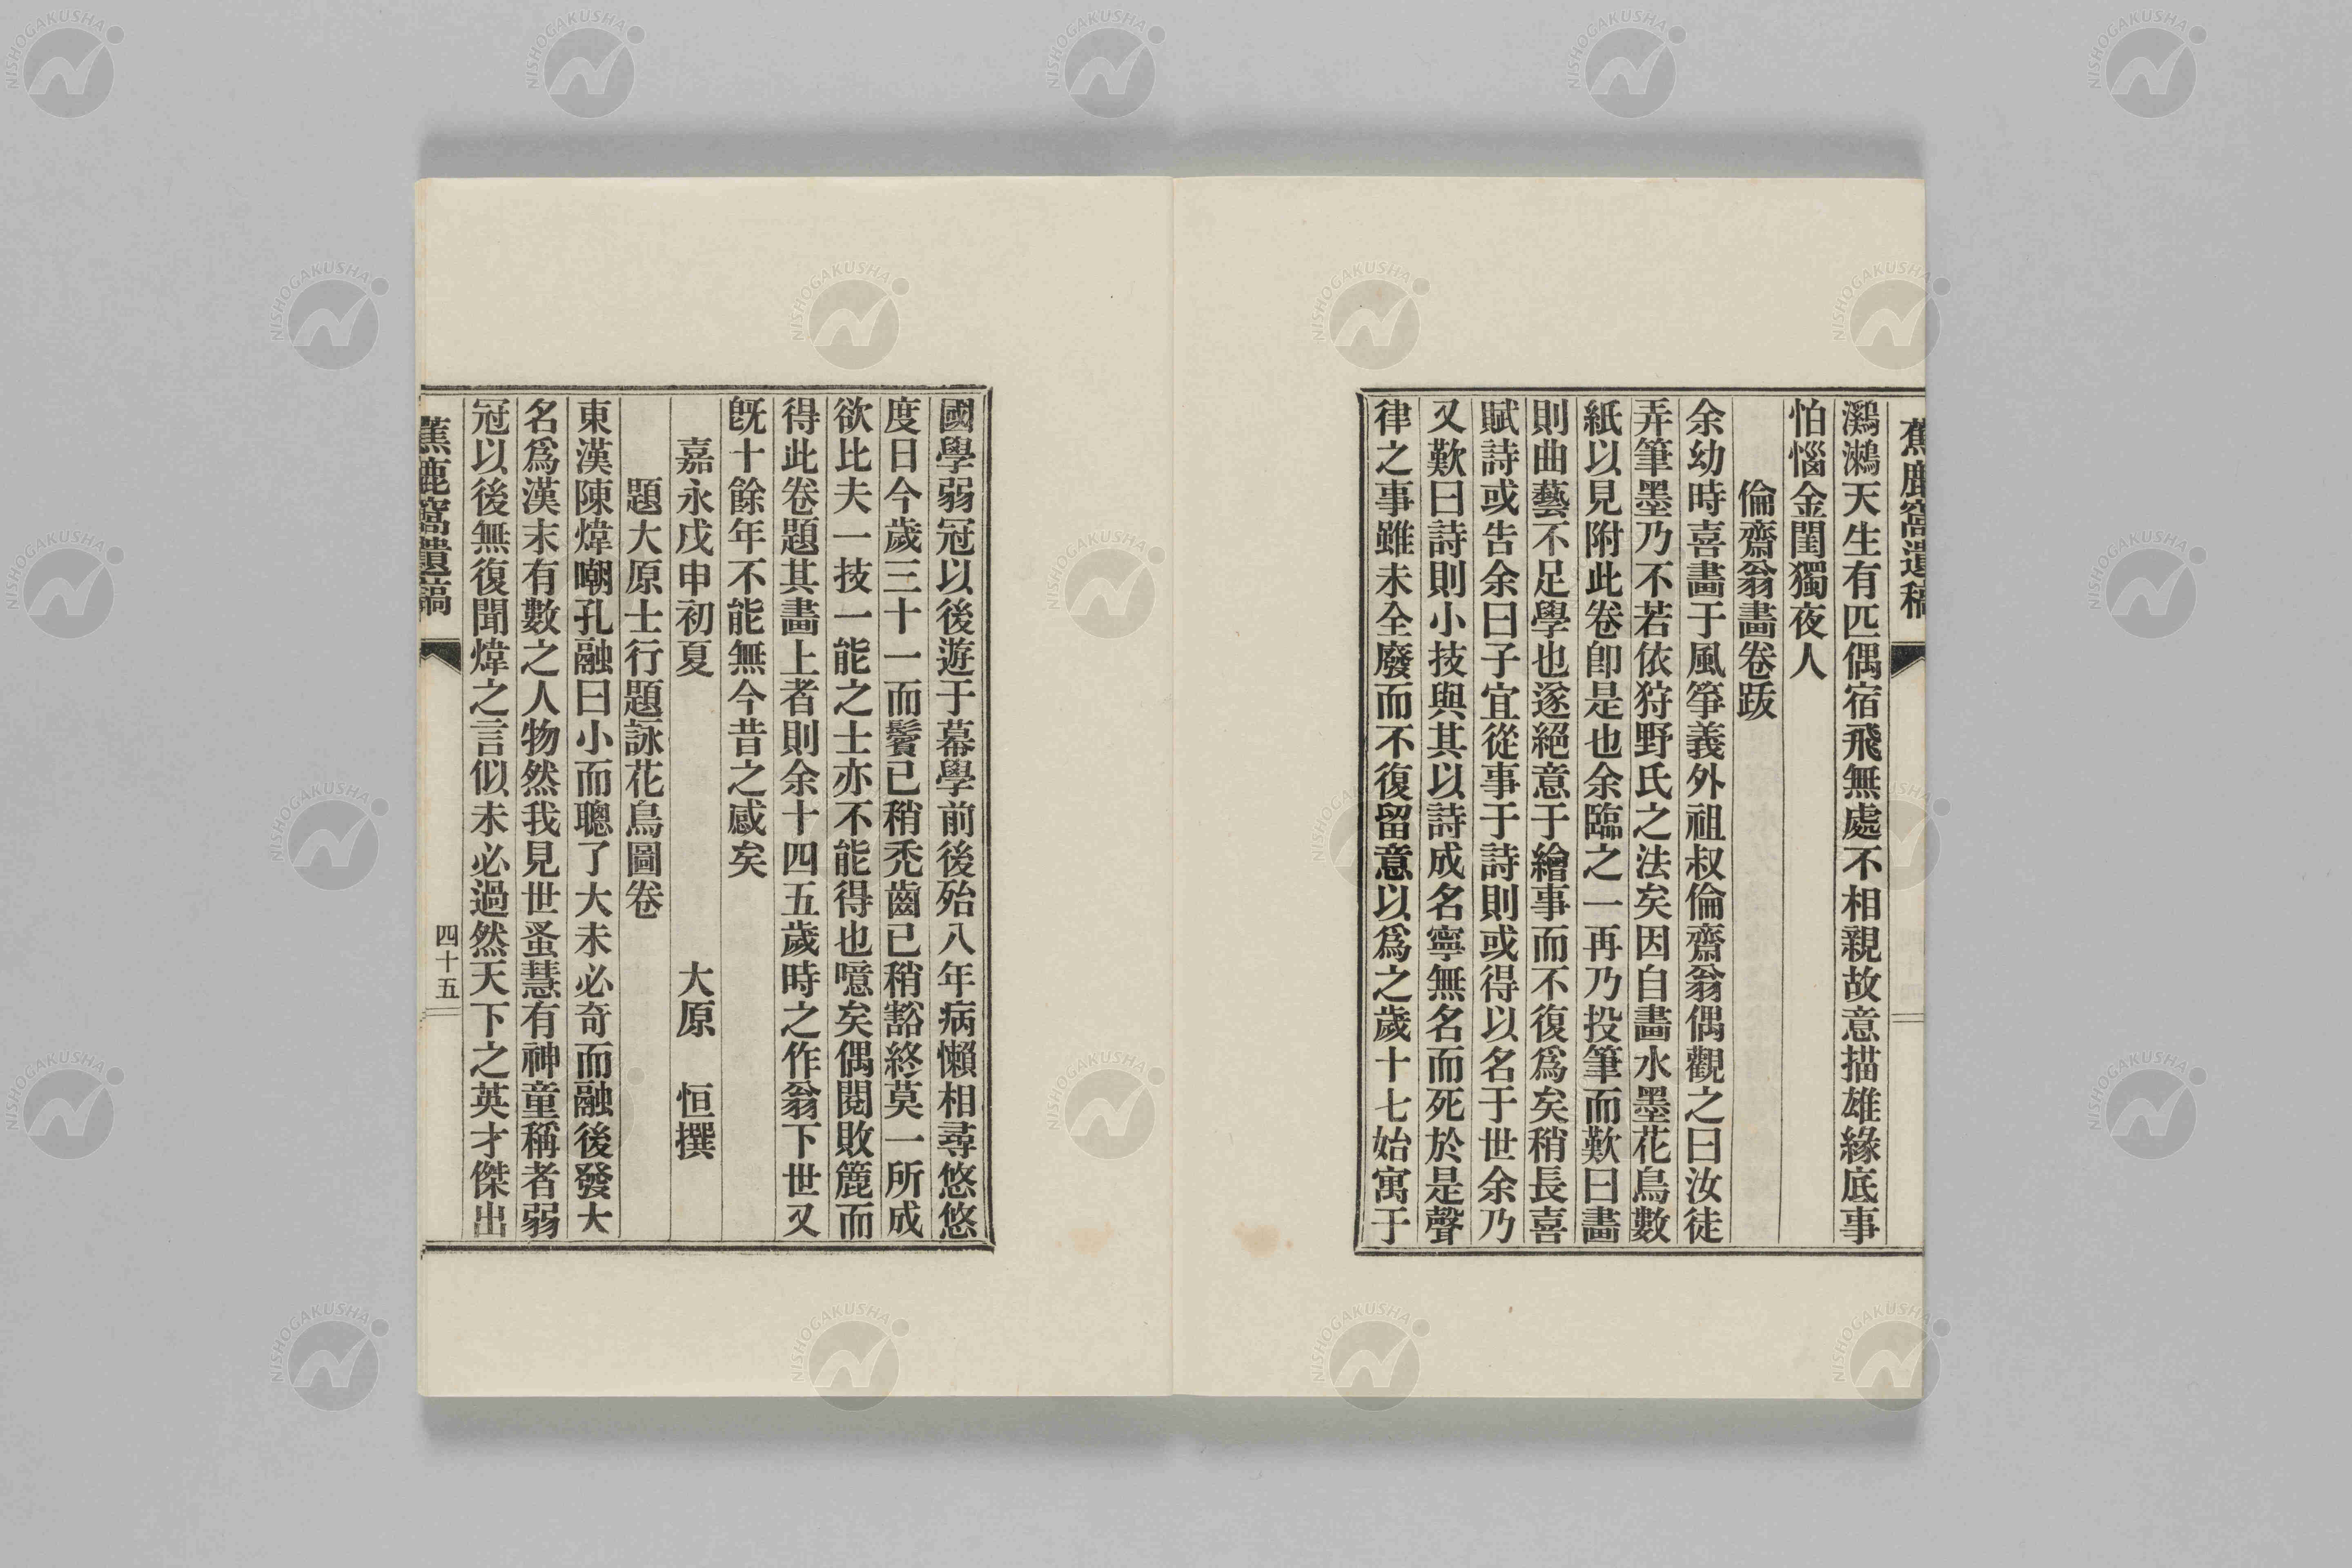 蕉鹿窩遺稿
鸂鶒天生有匹偶宿飛無處不相親故意描雄緣底事
怕惱金閨獨夜人
倫齋翁畫卷跋
余幼時喜畫于風箏義外祖叔倫齋翁偶觀之曰汝徒
弄筆墨乃不若依狩野氏之法矣因自畫水墨花鳥數
紙以見附此卷卽是也余臨之一再乃投筆而歎曰畫
則曲藝不足學也遂絕意于繪事而不復爲矣稍長喜
賦詩或告余曰子宜從事于詩則或得以名于世余乃
又歎曰詩則小技與其以詩成名寧無名而死於是聲
律之事雖未全廢而不復留意以爲之歲十七始寓于
國學弱冠以後遊于幕學前後殆八年病懶相尋悠悠
度日今歲三十一而鬢已稍禿齒已稍豁終莫一所成
欲比夫一技一能之士亦不能得也噫矣偶閱敗簏而
得此卷題其畫上者則余十四五歲時之作翁下世又
旣十餘年不能無今昔之感矣
嘉永戊申初夏 大原 恒撰
題大原士行題詠花鳥圖卷
東漢陳煒嘲孔融曰小而聰了大未必奇而融後發大
名爲漢末有數之人物然我見世蚤慧有神童稱者弱
冠以後無復聞煒之言似未必過然天下之英才傑出
蕉鹿窩遺稿
四十五
NISHOGAKUSHA